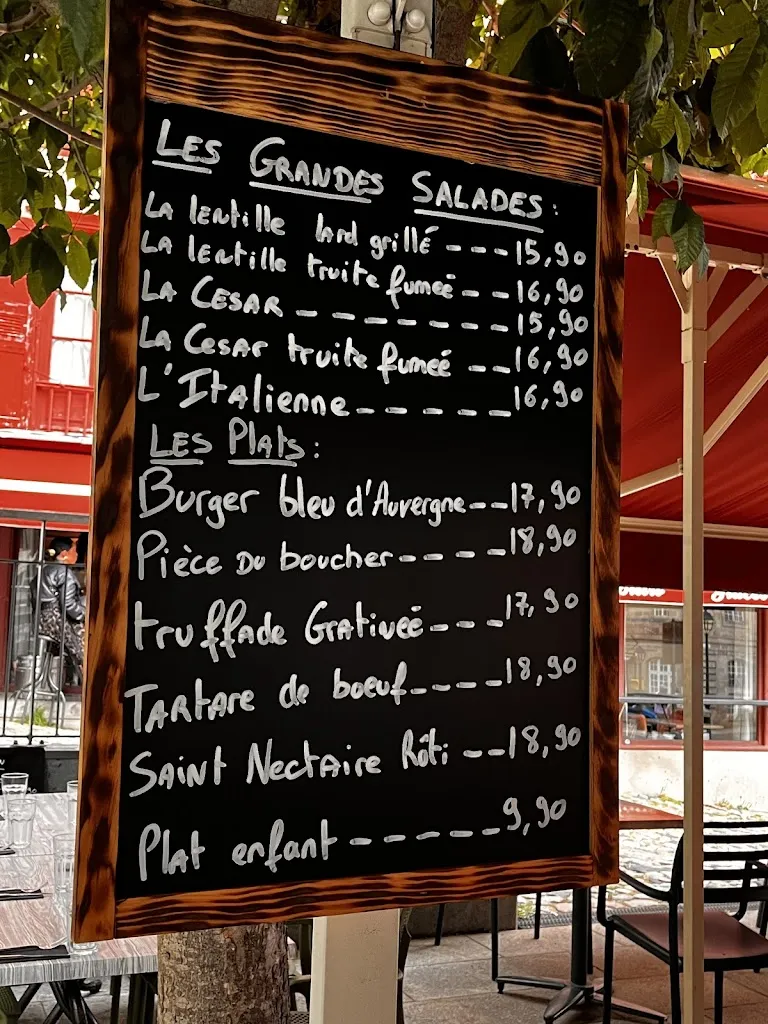 LES GRANDES SALADES:
La lentille lard grillé --- 15,90
La lentille truite fumeé -- 16,90
La CESAR ------- 15,90
La Cesar truite fumeé -- 16,90
L'Italienne ----- 16,90
LES Plats:
Burger bleu d'Auvergne -- 17,90
Pièce Du boucher ---- 18,90
truffade Gratineé --- 17,90
TARtare de boeuf ---- 18,90
SAINt NectAire Rôti -- 18,90
Plat enfant ------ 9,90